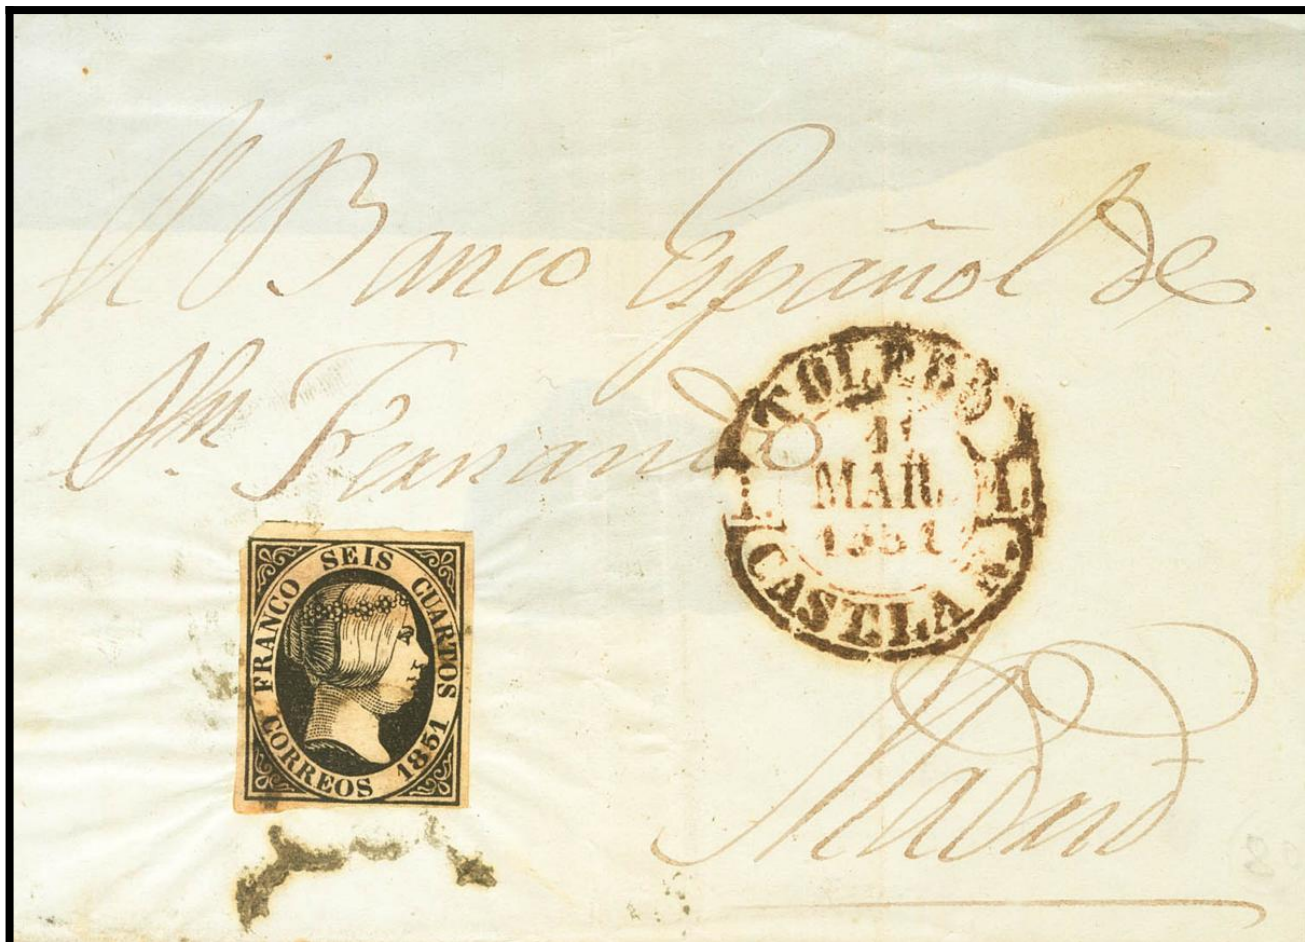 Al Banco Español de
Sn Fernando
TOLEDO
MAR
1851
CASTLA
FRANCO SEIS CUARTOS
CORREOS 1851
Madrid